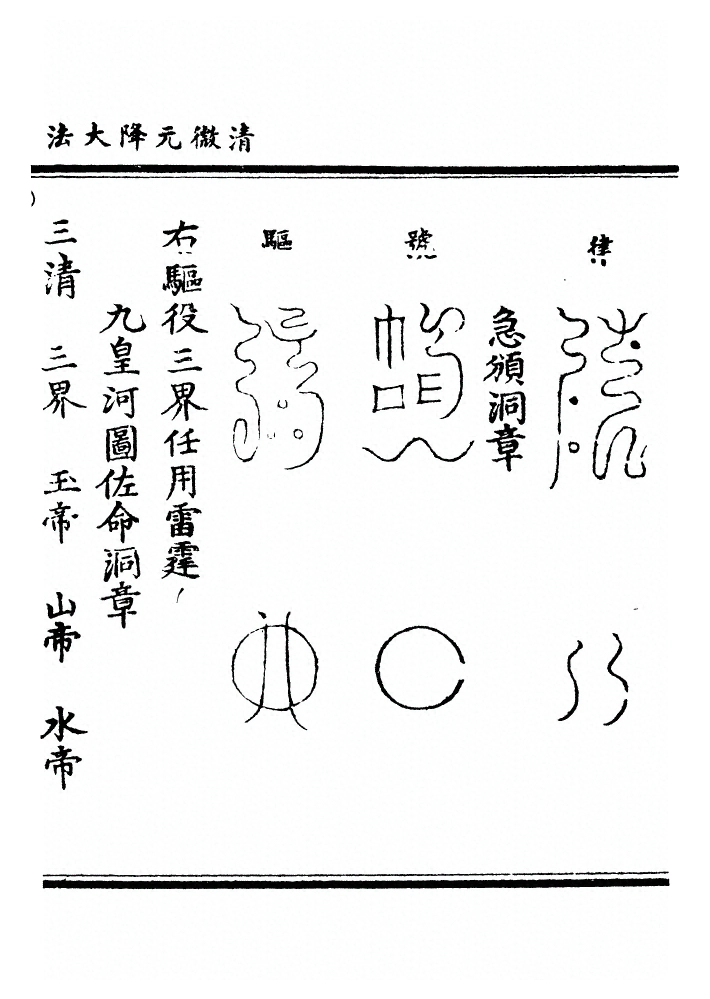 清微元降大法
律
急頒洞章
號
驅
右驅役三界任用雷霆
九皇河圖佐命洞章
三清 三界 玉帝 山帝 水帝